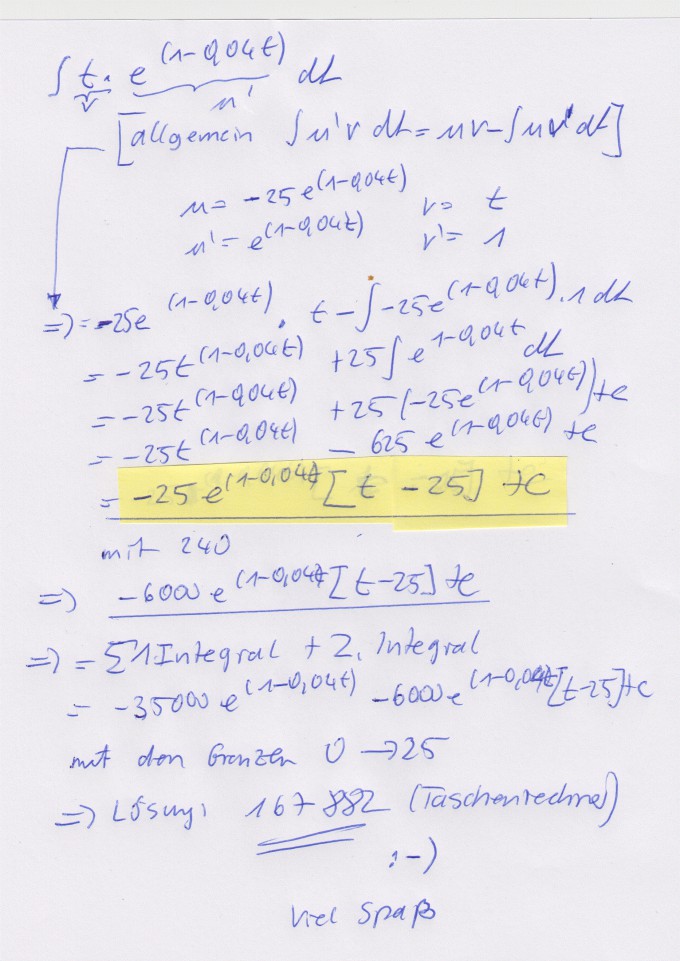 ∫ t · e^(1-0,04t) dt
v u'
[allgemein ∫u'v dt = uv - ∫uv' dt]
u = -25 e^(1-0,04t) v = t
u' = e^(1-0,04t) v' = 1
=> = -25e^(1-0,04t) · t - ∫-25e^(1-0,04t) · 1 dt
= -25t^(1-0,04t) + 25∫e^1-0,04t dt
= -25t^(1-0,04t) + 25(-25e^(1-0,04t)) + c
= -25t^(1-0,04t) - 625 e^(1-0,04t) + c
= -25 e^(1-0,04t) [t - 25] + C
mit 240
=> -6000 e^(1-0,04t) [t - 25] + c
=> = Σ 1 Integral + 2. Integral
= -35000 e^(1-0,04t) - 6000 e^(1-0,04t) [t-25] + c
mit den Grenzen 0 → 25
=> Lösung: 167 882 (Taschenrechner)
:-)
Viel Spaß